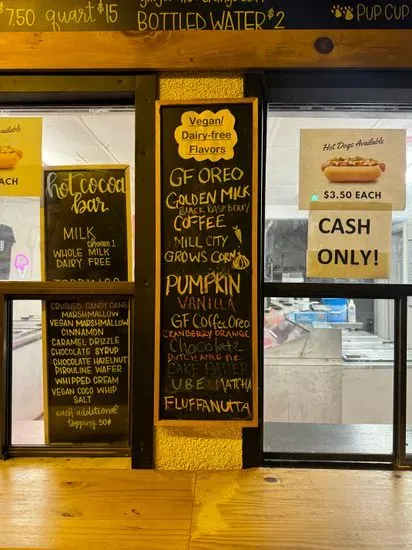 $7.50 quart $15
BOTTLED WATER $2
PUP CUP
Available
ACH
hot cocoa
bar
MILK
choose 1
WHOLE MILK
DAIRY FREE
CRUSHED CANDY CANE
MARSHMALLOW
VEGAN MARSHMALLOW
CINNAMON
CARAMEL DRIZZLE
CHOCOLATE SYRUP
CHOCOLATE HAZELNUT
PIROULINE WAFER
WHIPPED CREAM
VEGAN COCO WHIP
SALT
each additional
topping 50¢
Vegan/
Dairy-free
Flavors
GF OREO
GOLDEN MILK
BLACK RASPBERRY
COFFEE
MILL CITY
GROWS CORN
PUMPKIN
VANILLA
GF COFFEE OREO
CRANBERRY ORANGE
Chocolate
DUTCH APPLE PIE
CAKE BATTER
UBE MATCHA
FLUFFANUTTA
Hot Dogs Available
$3.50 EACH
CASH
ONLY!